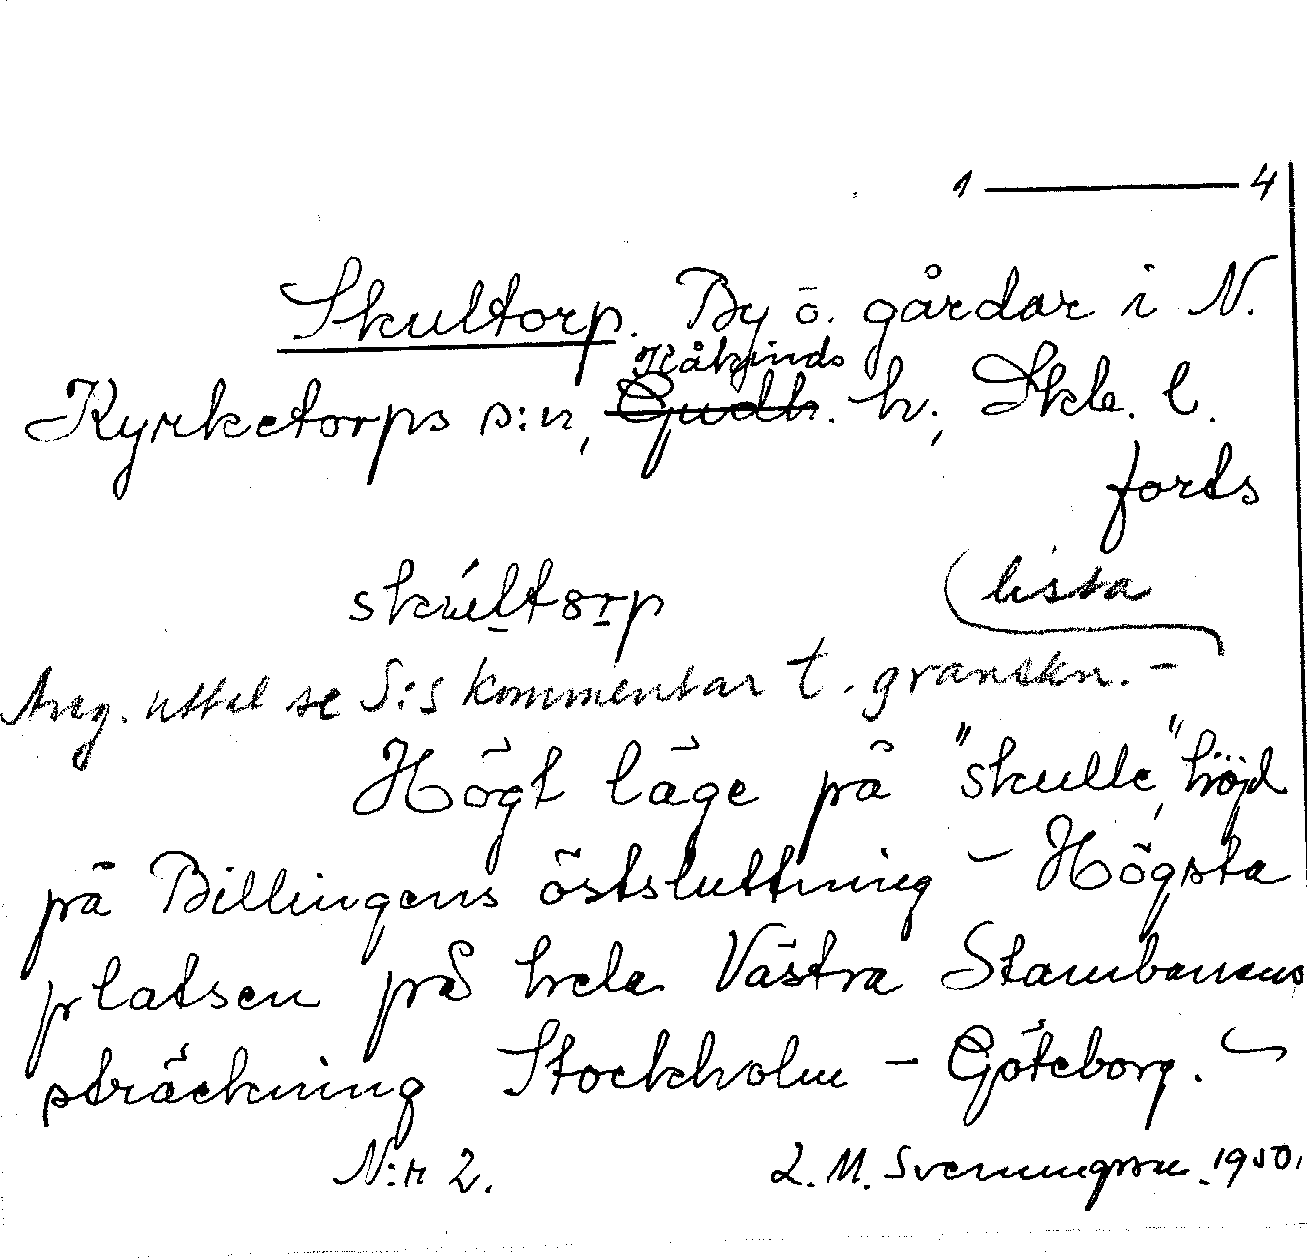 1 — 4
Skultorp. By o. gårdar i N.
Kåkinds
Kyrketorps s:n, Gudh. h., Skb. l.
forts
skúltorp (lista
Ang. uttal se S:s kommentar t. granskn. –
Högt läge på "skulle", höjd
på Billingens östsluttning – Högsta
platsen på hela Västra Stambanans
sträckning Stockholm – Göteborg. –
N:r 2. L. M. Svenungsson. 1950.